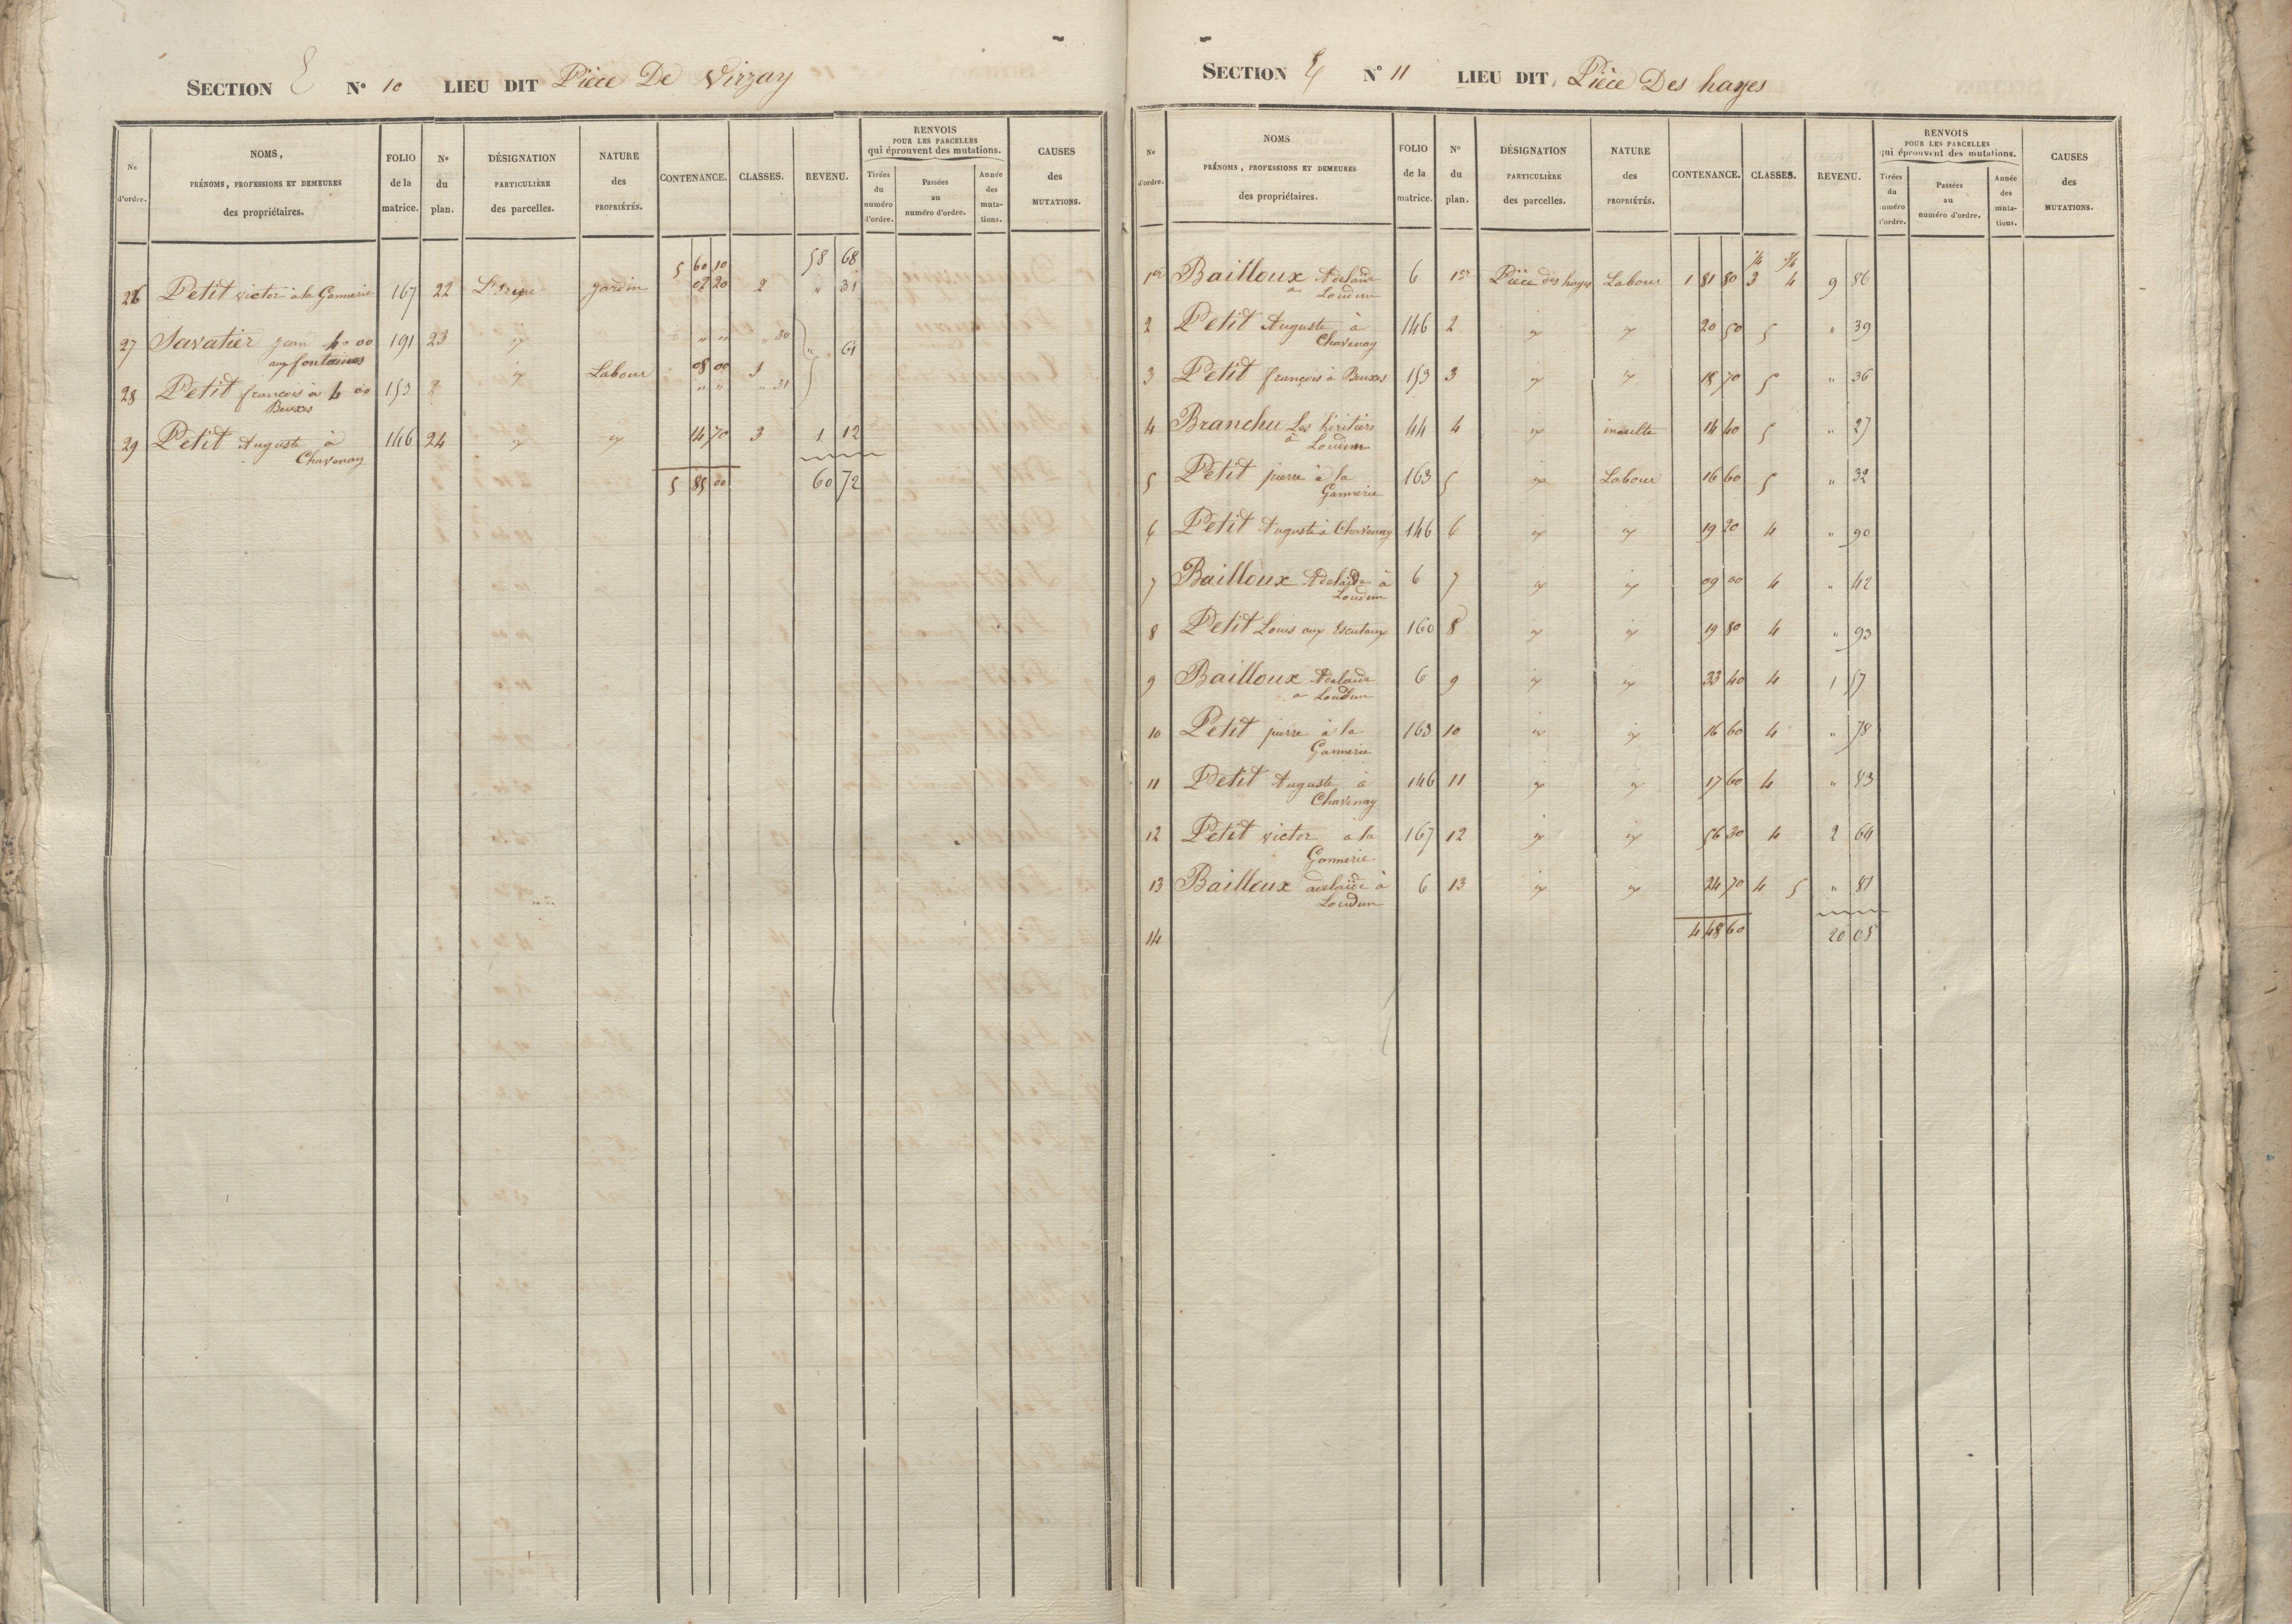 SECTION E N° 10 LIEU DIT Pièce De Virzay
No d'ordre. NOMS, PRÉNOMS, PROFESSIONS ET DEMEURES des propriétaires. FOLIO de la matrice. No du plan. DÉSIGNATION PARTICULIÈRE des parcelles. NATURE des PROPRIÉTÉS. CONTENANCE. CLASSES. REVENU. RENVOIS POUR LES PARCELLES qui éprouvent des mutations. Tirées du numéro d'ordre. Passées au numéro d'ordre. Année des mutations. CAUSES des MUTATIONS.
5 60 10 58 68
26 Petit victor à la Gannerie 167 22 jardin 02 20 2 " 31
27 Savatier jean 4 00 191 23 id " " " 30
aux fontaines " 61
28 Petit françois à 4 00 153 id Labour 08 00 3
Beuxes " " " 31
29 Petit Auguste à 146 24 id id 14 70 3 1 12
Chavenay
5 85 00 60 72
SECTION E N° 11 LIEU DIT Pièce Des hayes
No d'ordre. NOMS PRÉNOMS, PROFESSIONS ET DEMEURES des propriétaires. FOLIO de la matrice. N° du plan. DÉSIGNATION PARTICULIÈRE des parcelles. NATURE des PROPRIÉTÉS. CONTENANCE. CLASSES. REVENU. RENVOIS POUR LES PARCELLES qui éprouvent des mutations. Tirées du numéro d'ordre. Passées au numéro d'ordre. Année des mutations. CAUSES des MUTATIONS.
1er Bailloux Adelaïde 6 1er Pièce des hayes Labour 1 81 80 3 4 9 86
a Loudun
2 Petit Auguste à 146 2 id id 20 50 5 " 39
Chavenay
3 Petit françois à Beuxes 153 3 id id 18 70 5 " 36
4 Branchu Les héritiers 44 4 id inculte 14 40 5 " 27
à Loudun
5 Petit pierre à la 163 5 id Labour 16 60 5 " 32
Gannerie
6 Petit Auguste à Chavenay 146 6 id id 19 20 4 " 90
7 Bailloux Adelaïde à 6 7 id id 09 00 4 " 42
Loudun
8 Petit Louis aux Escutaux 160 8 id id 19 80 4 " 93
9 Bailloux Adelaïde 6 9 id id 33 40 4 1 57
a Loudun
10 Petit pierre à la 163 10 id id 16 60 4 " 78
Gannerie
11 Petit Auguste à 146 11 id id 17 60 4 " 83
Chavenay
12 Petit victor a la 167 12 id id 56 30 4 2 64
Gannerie
13 Bailloux adelaïde à 6 13 id id 24 70 4 5 " 81
Loudun
14 4 48 60 20 08